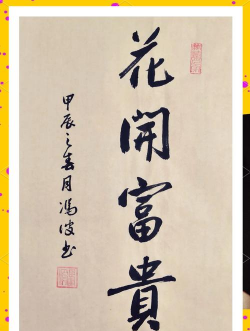 花開富貴
甲辰之春月馮波书